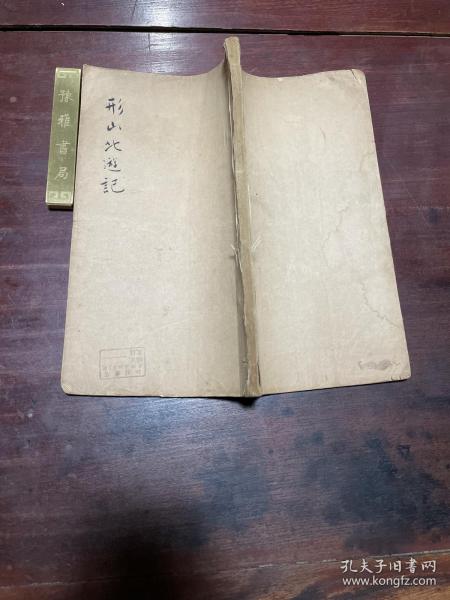 豫雅書局
形山北遊記
孔夫子旧书网
www.kongfz.com